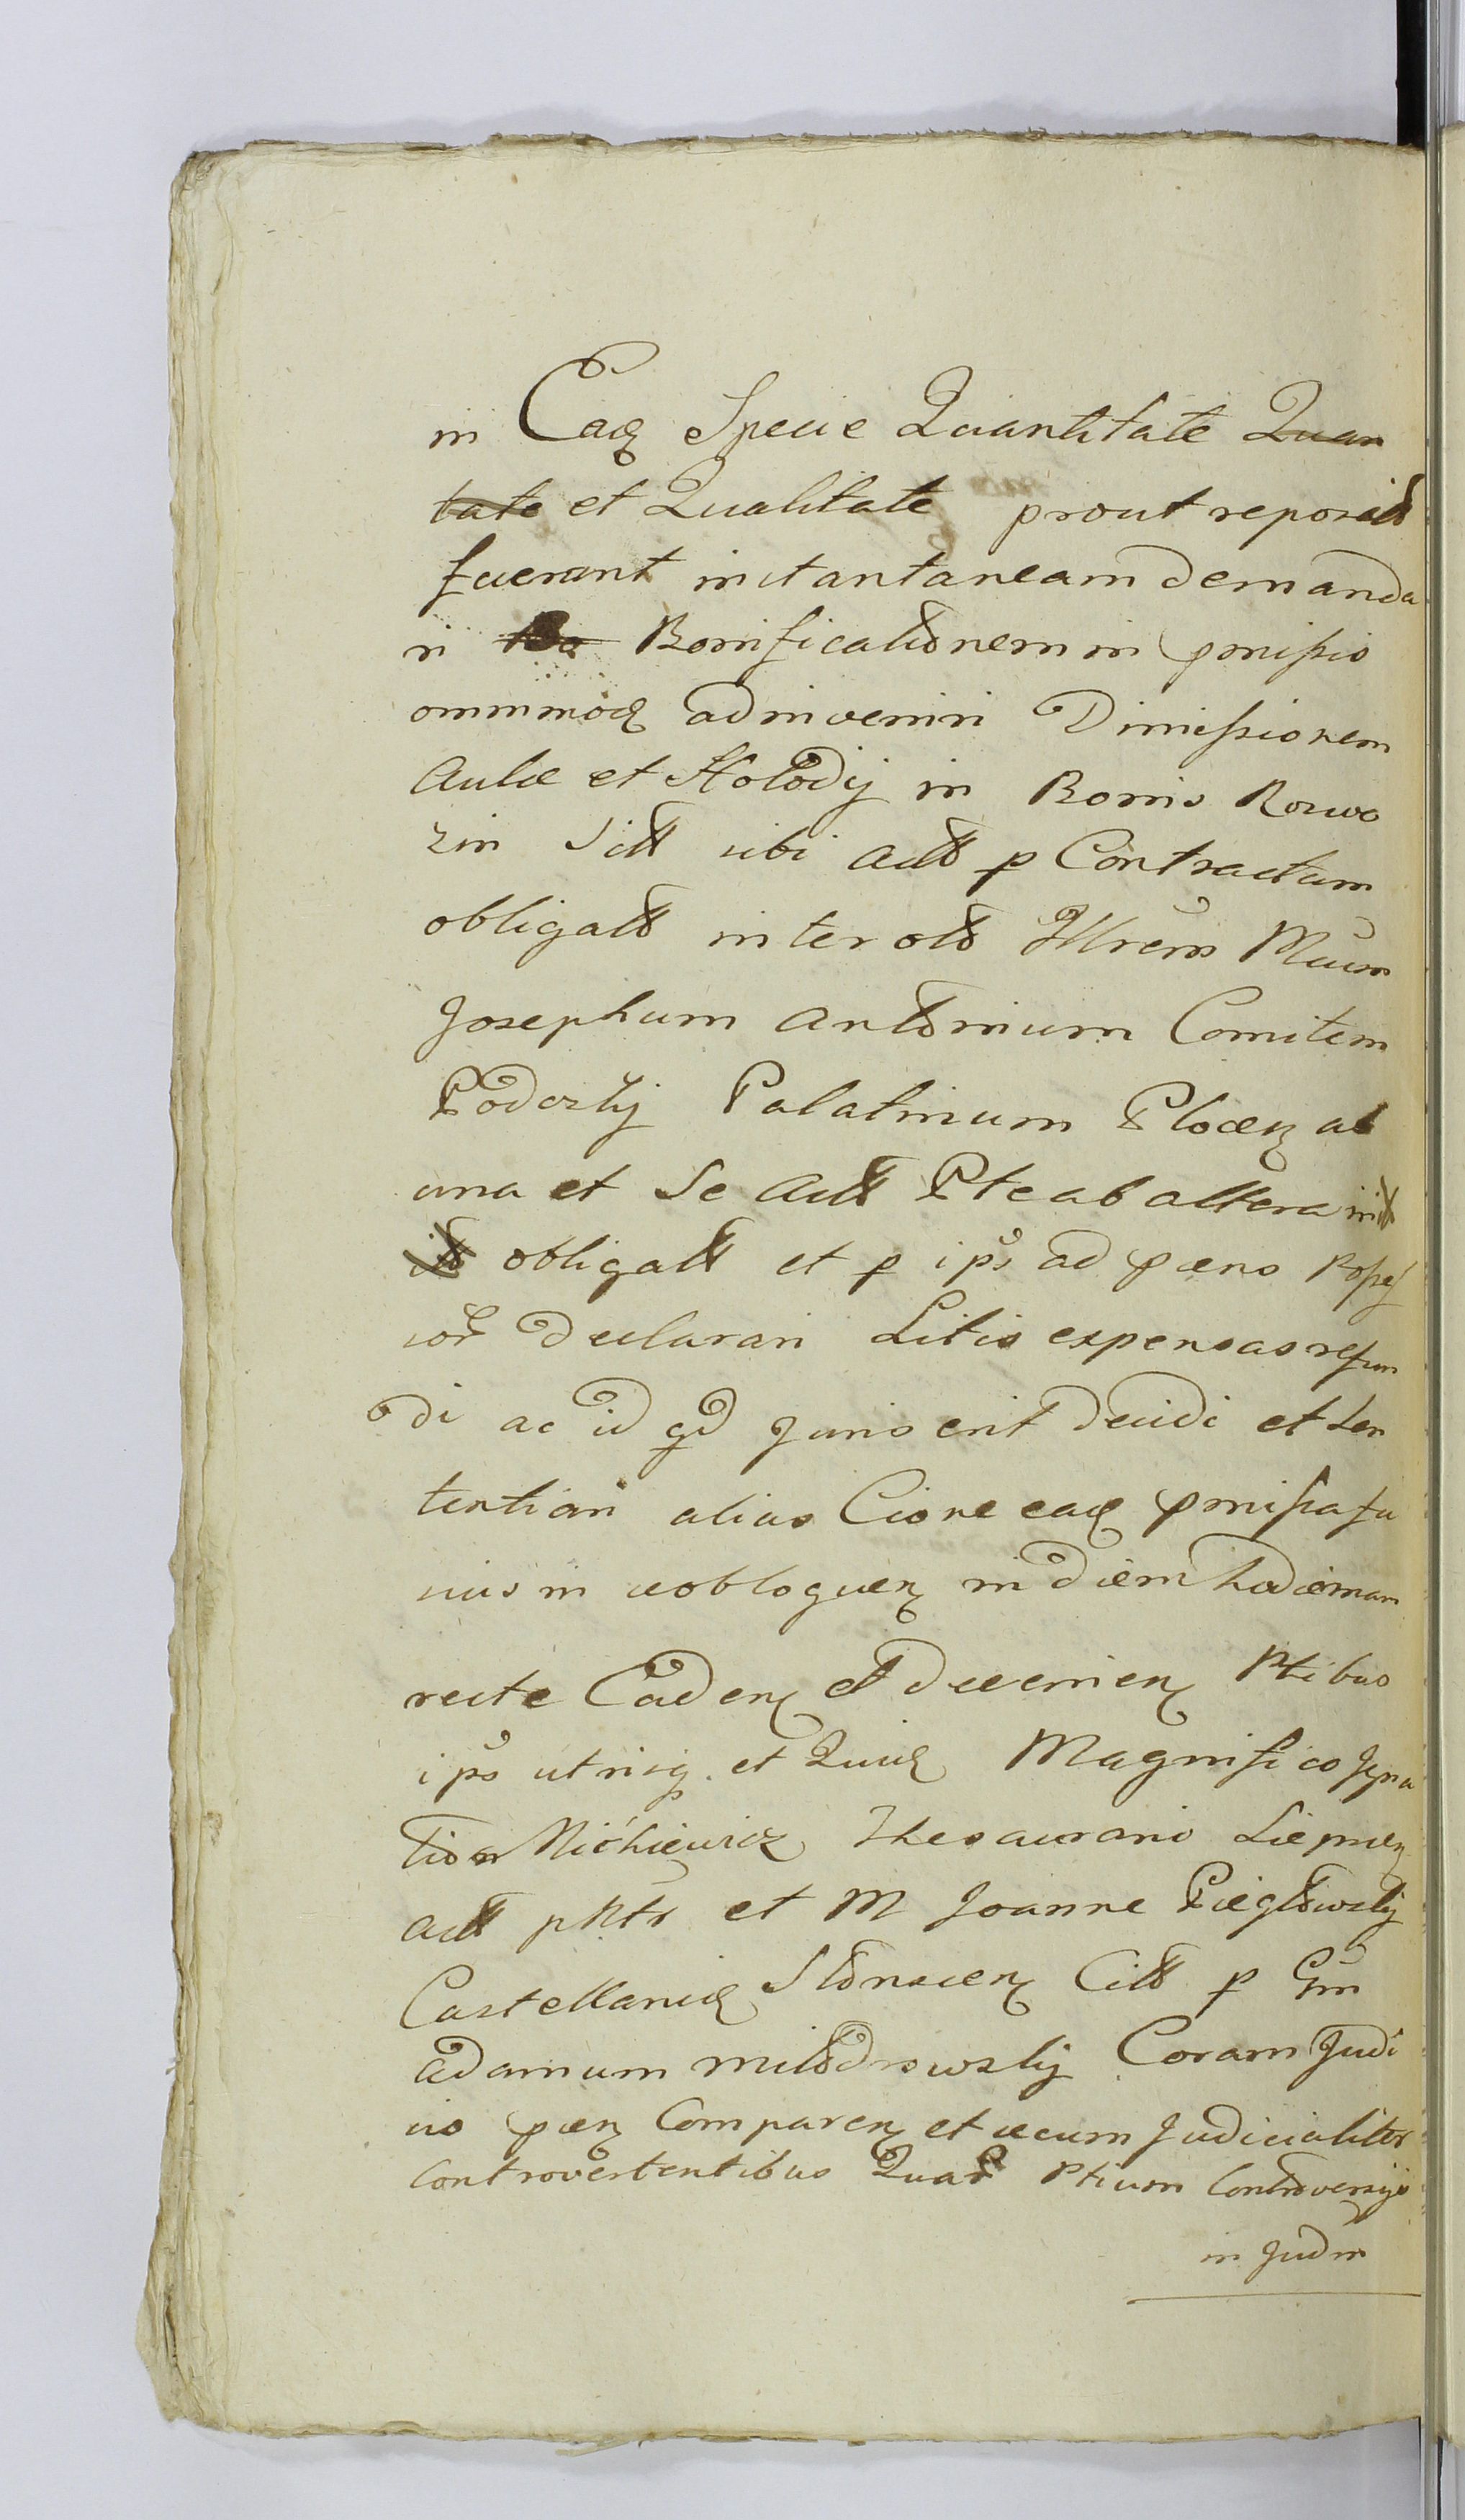 in Eadem Specie Quantitate Quan
tate et Qualitate prout reposit
fuerant instantaneam demanda
ri Bo Bonificationem in pmissis
omnimod adinveniri Dimissionem
Aulae et Folodij in Bonis Rouwo
zin Sitt sibi Actt p Contractum
obligatt inter ott Illrem Mcum
Josephum Antonium Comitem
Podoskij Palatinum Plocen ab
una et Se Actt Pte ab altera init
itt obligatt et p ips ad paenas Possess
ior declarari Litis expensas refun
di ac id qd Juris erit decidi et Sen
tentiari alias Cione ead pmissa fu
sius in se obloquen in diem hodiernam
recte Caden et devenien Ptibus
ips utrisq et Quid Magnifico Igna
tio Michiewicz Thesaurario Liepnen
Actt pntr et M Joanne Pieglowskij
Castellanid Slonscen Citt p Gm
Adamum Milodrowskij Coram Judi
cio pnen Comparen et secum Judicialiter
Controvertentibus Quar Ptium Controversijs
in Judm